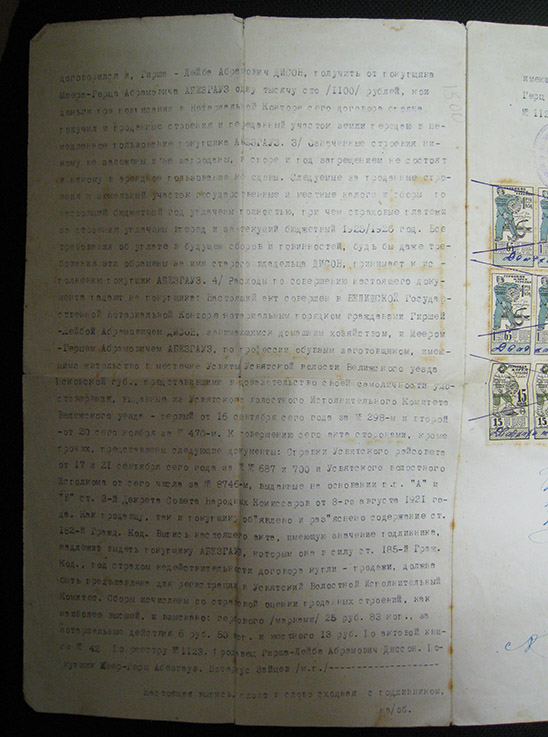 договорился я, Гирша - Лейба Абрамович ДИСОН, получить от покупщика
Меера-Герца Абрамовича АБЕЗГАУЗ одну тысячу сто /1100/ рублей, кои
деньги при подписании в Нотариальной Конторе сего договора сполна
получил и проданные строения и переданный участок земли передаю в не-
медленное пользование покупщика АБЕЗГАУЗ. 3/ Означенные строения ни-
кому не заложены и не запроданы, в споре и под запрещением не состоят
и никому в арендное пользование не сданы. Следуемые за проданные стро-
ения и земельный участок государственные и местные налоги и сборы по
настоящий бюджетный год уплачены полностью, при чем страховые платежи
за строения уплачены вперед и за текущий бюджетный 1925/1926 год. Все
требования об уплате в будущем сборов и повинностей, будь бы даже тре-
бования эти обращены на имя старого владельца ДИСОН, принимает к ис-
полнению покупщик АБЕЗГАУЗ. 4/ Расходы по совершению настоящего доку-
мента падают на покупщика: Настоящий акт совершен в ВЕЛИЖСКОЙ Государ-
ственной Нотариальной Конторе нотариальным порядком гражданами Гиршей
-Лейбой Абрамовичем ДИСОН, занимающимся домашним хозяйством, и Меером
-Герцем Абрамовичем АБЕЗГАУЗ, по профессии обувным заготовщиком, имею-
щими жительство в местечке Усвяты Усвятской волости Велижского уезда
Псковской губ., представившими в доказательство своей самоличности удо-
стоверения, выданные из Усвятского Волостного Исполнительного Комитета
Велижского уезда - первый от 16 сентября сего года за № 298-м и второй
-от 20 сего ноября за № 470-м. К совершению сего акта сторонами, кроме
прочих, представлены следующие документы: Справки Усвятского райсовета
от 17 и 21 сентября сего года за № № 687 и 700 и Усвятского волостного
Исполкома от сего числа за № 8746-м, выданные на основании п.п. "А" и
ст. 3-й Декрета Совета Народных Комиссаров от 8-го августа 1921 го-
да. Как продавцу, так и покупщику об"явлено и раз"яснено содержание ст.
182-й Гражд. Код. Выпись настоящего акта, имеющую значение подлинника,
надлежит выдать покупщику АБЕЗГАУЗ, которым она в силу ст. 185-й Граж.
Код., под страхом недействительности договора купли - продажи, должна
быть предъявлена для регистрации в Усвятский Волостной Исполнительный
Комитет. Сборы исчислены со страховой оценки проданных строений, как
наиболее высшей, и взыскано: гербового /марками/ 25 руб. 83 коп., за
нотариальные действия 6 руб. 55 коп. и местного 13 руб. По актовой кни-
ге № 42 По реестру № 1123. Продавец Гирша-Лейба Абрамович Диссон. По-
купщик Меер-Герц Абезгауз. Нотариус Зайцев /м.п./
Настоящая выпись, слово в слово сходная с подлинником,
на/об.
1500
имею
Герц
№ 112
15
15